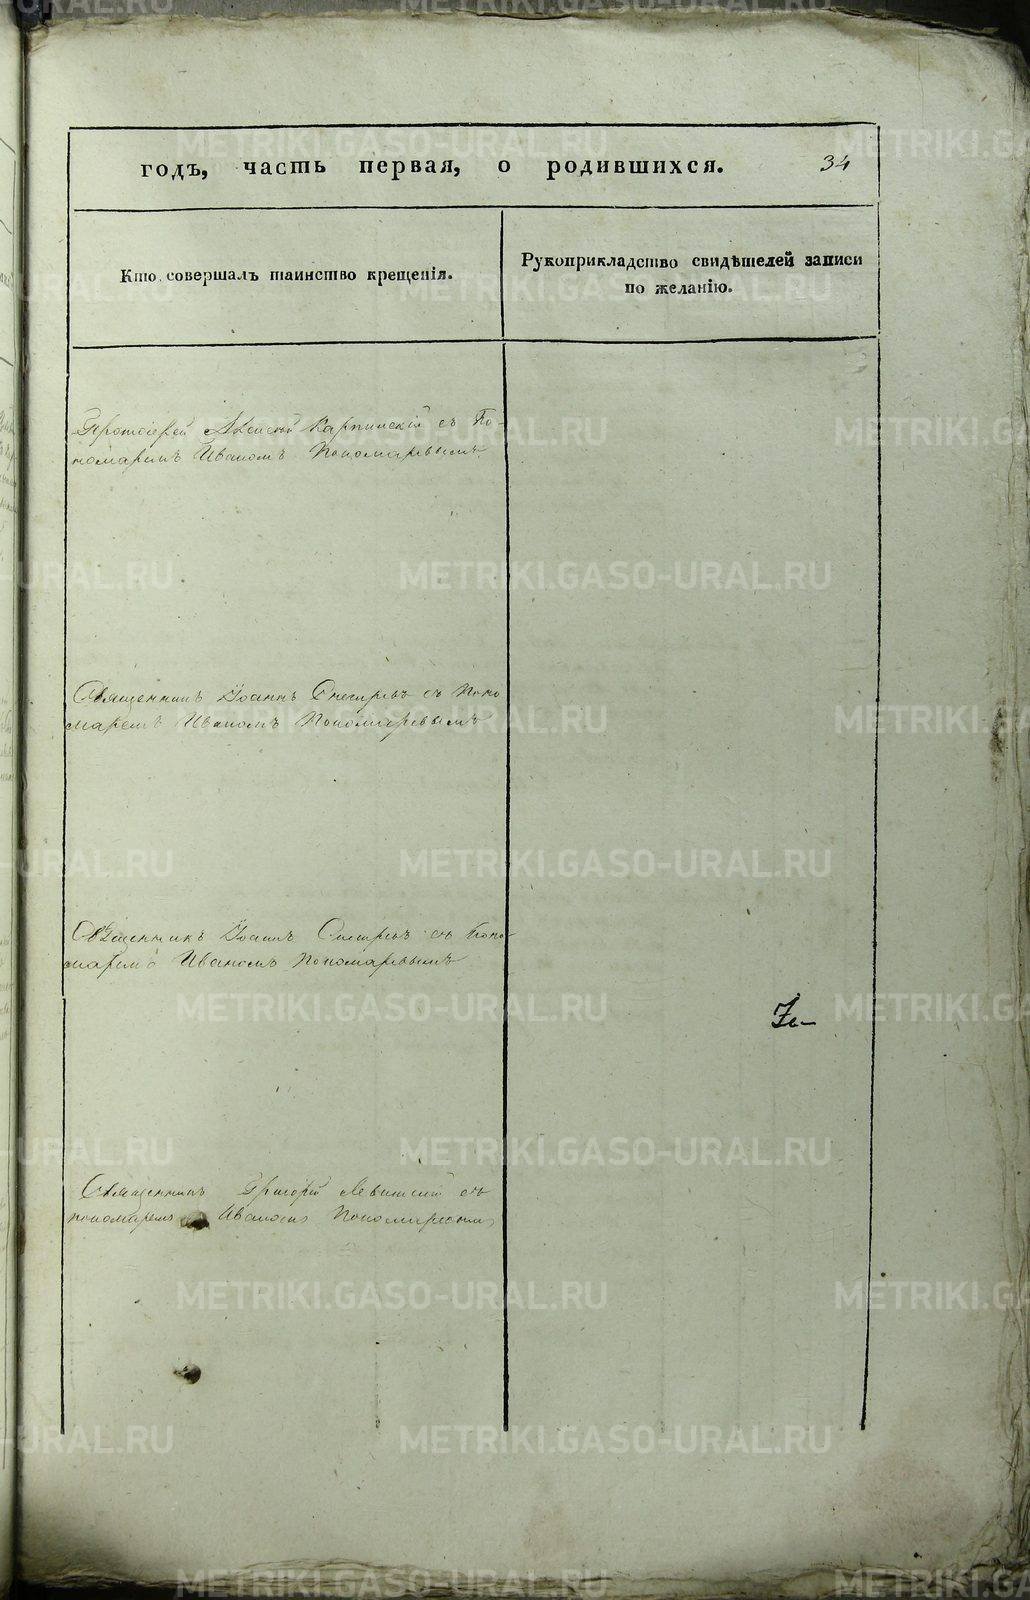 годъ, часть первая, о родившихся. 34
Кто совершалъ таинство крещенія.
Рукоприкладство свидѣтелей записи
по желанію.
Протоіерей Алексій Карпинскій съ По-
номаремъ Иваномъ Пономаревымъ
Священникъ Іоаннъ Снегиревъ съ Поно
маремъ Иваномъ Пономаревымъ
Священникъ Іоаннъ съ Поно
маремъ Иваномъ Пономаревымъ
Священникъ Григорій Левитскій съ
пономаремъ Иваномъ Пономаревымъ
METRIKI.GASO-URAL.RU